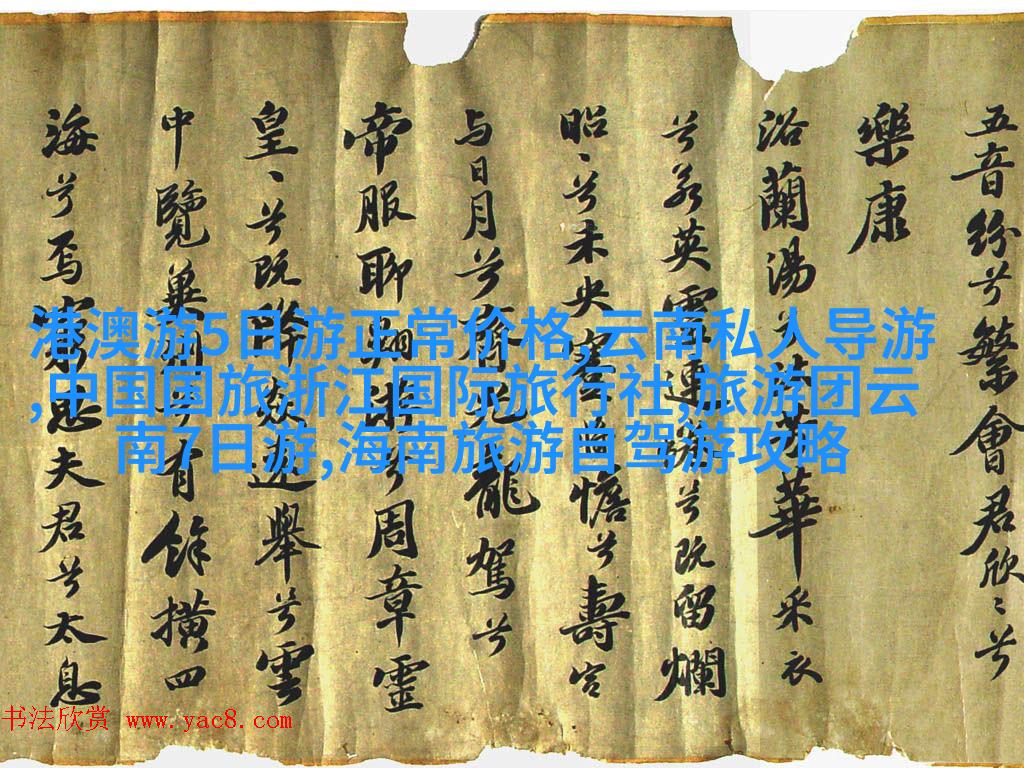 五音紛兮繁會君欣〻兮
樂康
浴蘭湯兮沐芳華采衣
兮若英靈連蜷兮既留爛
昭〻兮未央蹇将憺兮壽宮
与日月兮齊光龍駕兮
帝服聊翱遊兮周章靈
皇〻兮既降猋遠舉兮雲
中覽冀州兮有餘横四
海兮焉窮思夫君兮太息
港澳游5日游正常价格,云南私人导游
,中国国旅浙江国际旅行社,旅游团云
南7日游,海南旅游自驾游攻略
书法欣赏 www.yac8.com